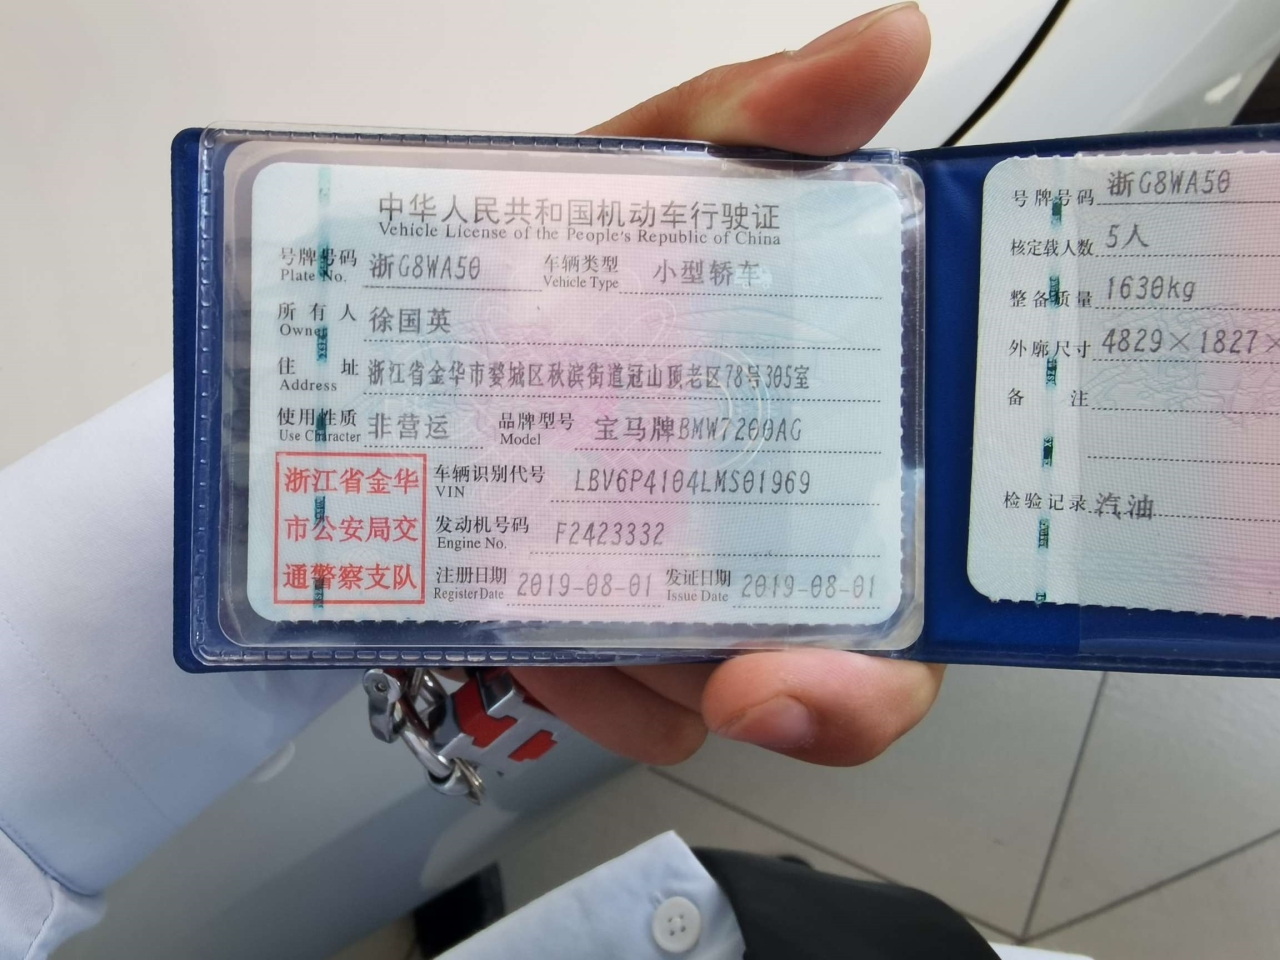 中华人民共和国机动车行驶证
Vehicle License of the People's Republic of China
号牌号码 浙G8WA50 车辆类型 小型轿车
Plate No. Vehicle Type
所有人 徐国英
Owner
住址 浙江省金华市婺城区秋滨街道冠山顶老区78号305室
Address
使用性质 非营运 品牌型号 宝马牌BMW7200AG
Use Character Model
浙江省金华
市公安局交
通警察支队
车辆识别代号 LBV6P4104LMS01969
VIN
发动机号码 F2423332
Engine No.
注册日期 2019-08-01 发证日期 2019-08-01
Register Date Issue Date
号牌号码 浙G8WA50
核定载人数 5人
整备质量 1630kg
外廓尺寸 4829×1827×
备注
检验记录 汽油